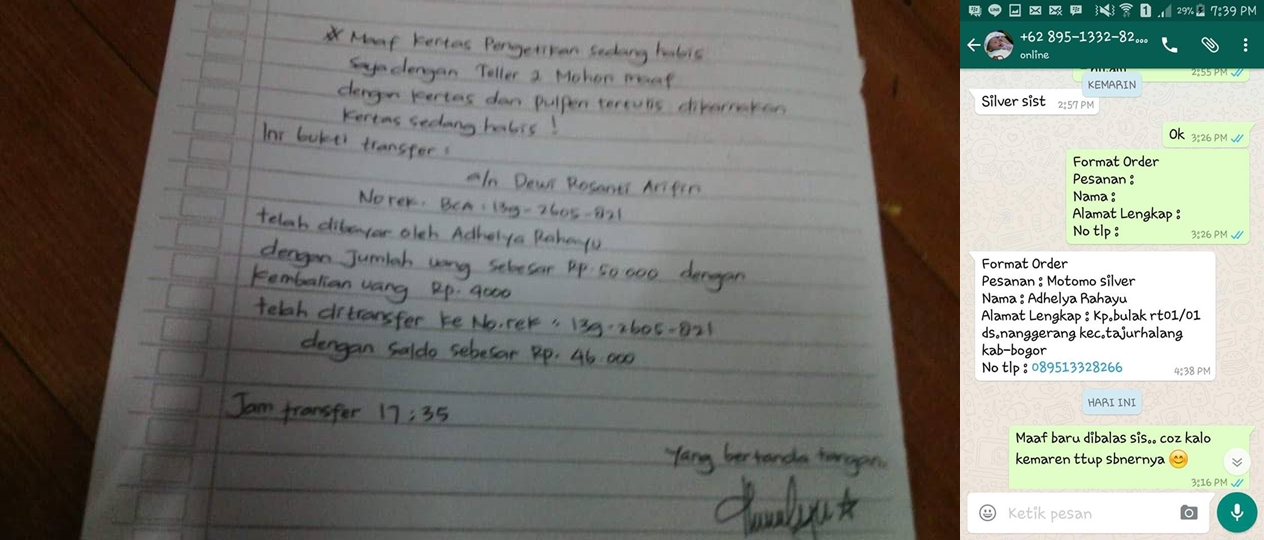 * Maaf kertas Pengetikan sedang habis
Saya dengan Teller 2 Mohon maaf
dengan kertas dan pulpen tertulis dikarnakan
kertas sedang habis !
Ini bukti transfer :
a/n Dewi Rosanti Arifin
No rek. BCA : 139-2605-821
telah dibayar oleh Adhelya Rahayu
dengan Jumlah uang sebesar Rp. 50.000 dengan
kembalian uang Rp. 4000
telah ditransfer ke No.rek : 139-2605-821
dengan saldo sebesar Rp. 46.000
Jam transfer 17:35
Yang bertanda tangan.
29% 7:39 PM
+62 895-1332-82...
online
2:55 PM
KEMARIN
Silver sist 2:57 PM
Ok 3:26 PM
Format Order
Pesanan :
Nama :
Alamat Lengkap :
No tlp :
3:26 PM
Format Order
Pesanan : Motomo silver
Nama : Adhelya Rahayu
Alamat Lengkap : Kp.bulak rt01/01
ds.nanggerang kec.tajurhalang
kab-bogor
No tlp : 089513328266
4:38 PM
HARI INI
Maaf baru dibalas sis.. coz kalo
kemaren ttup sbnernya 😊
3:16 PM
Ketik pesan